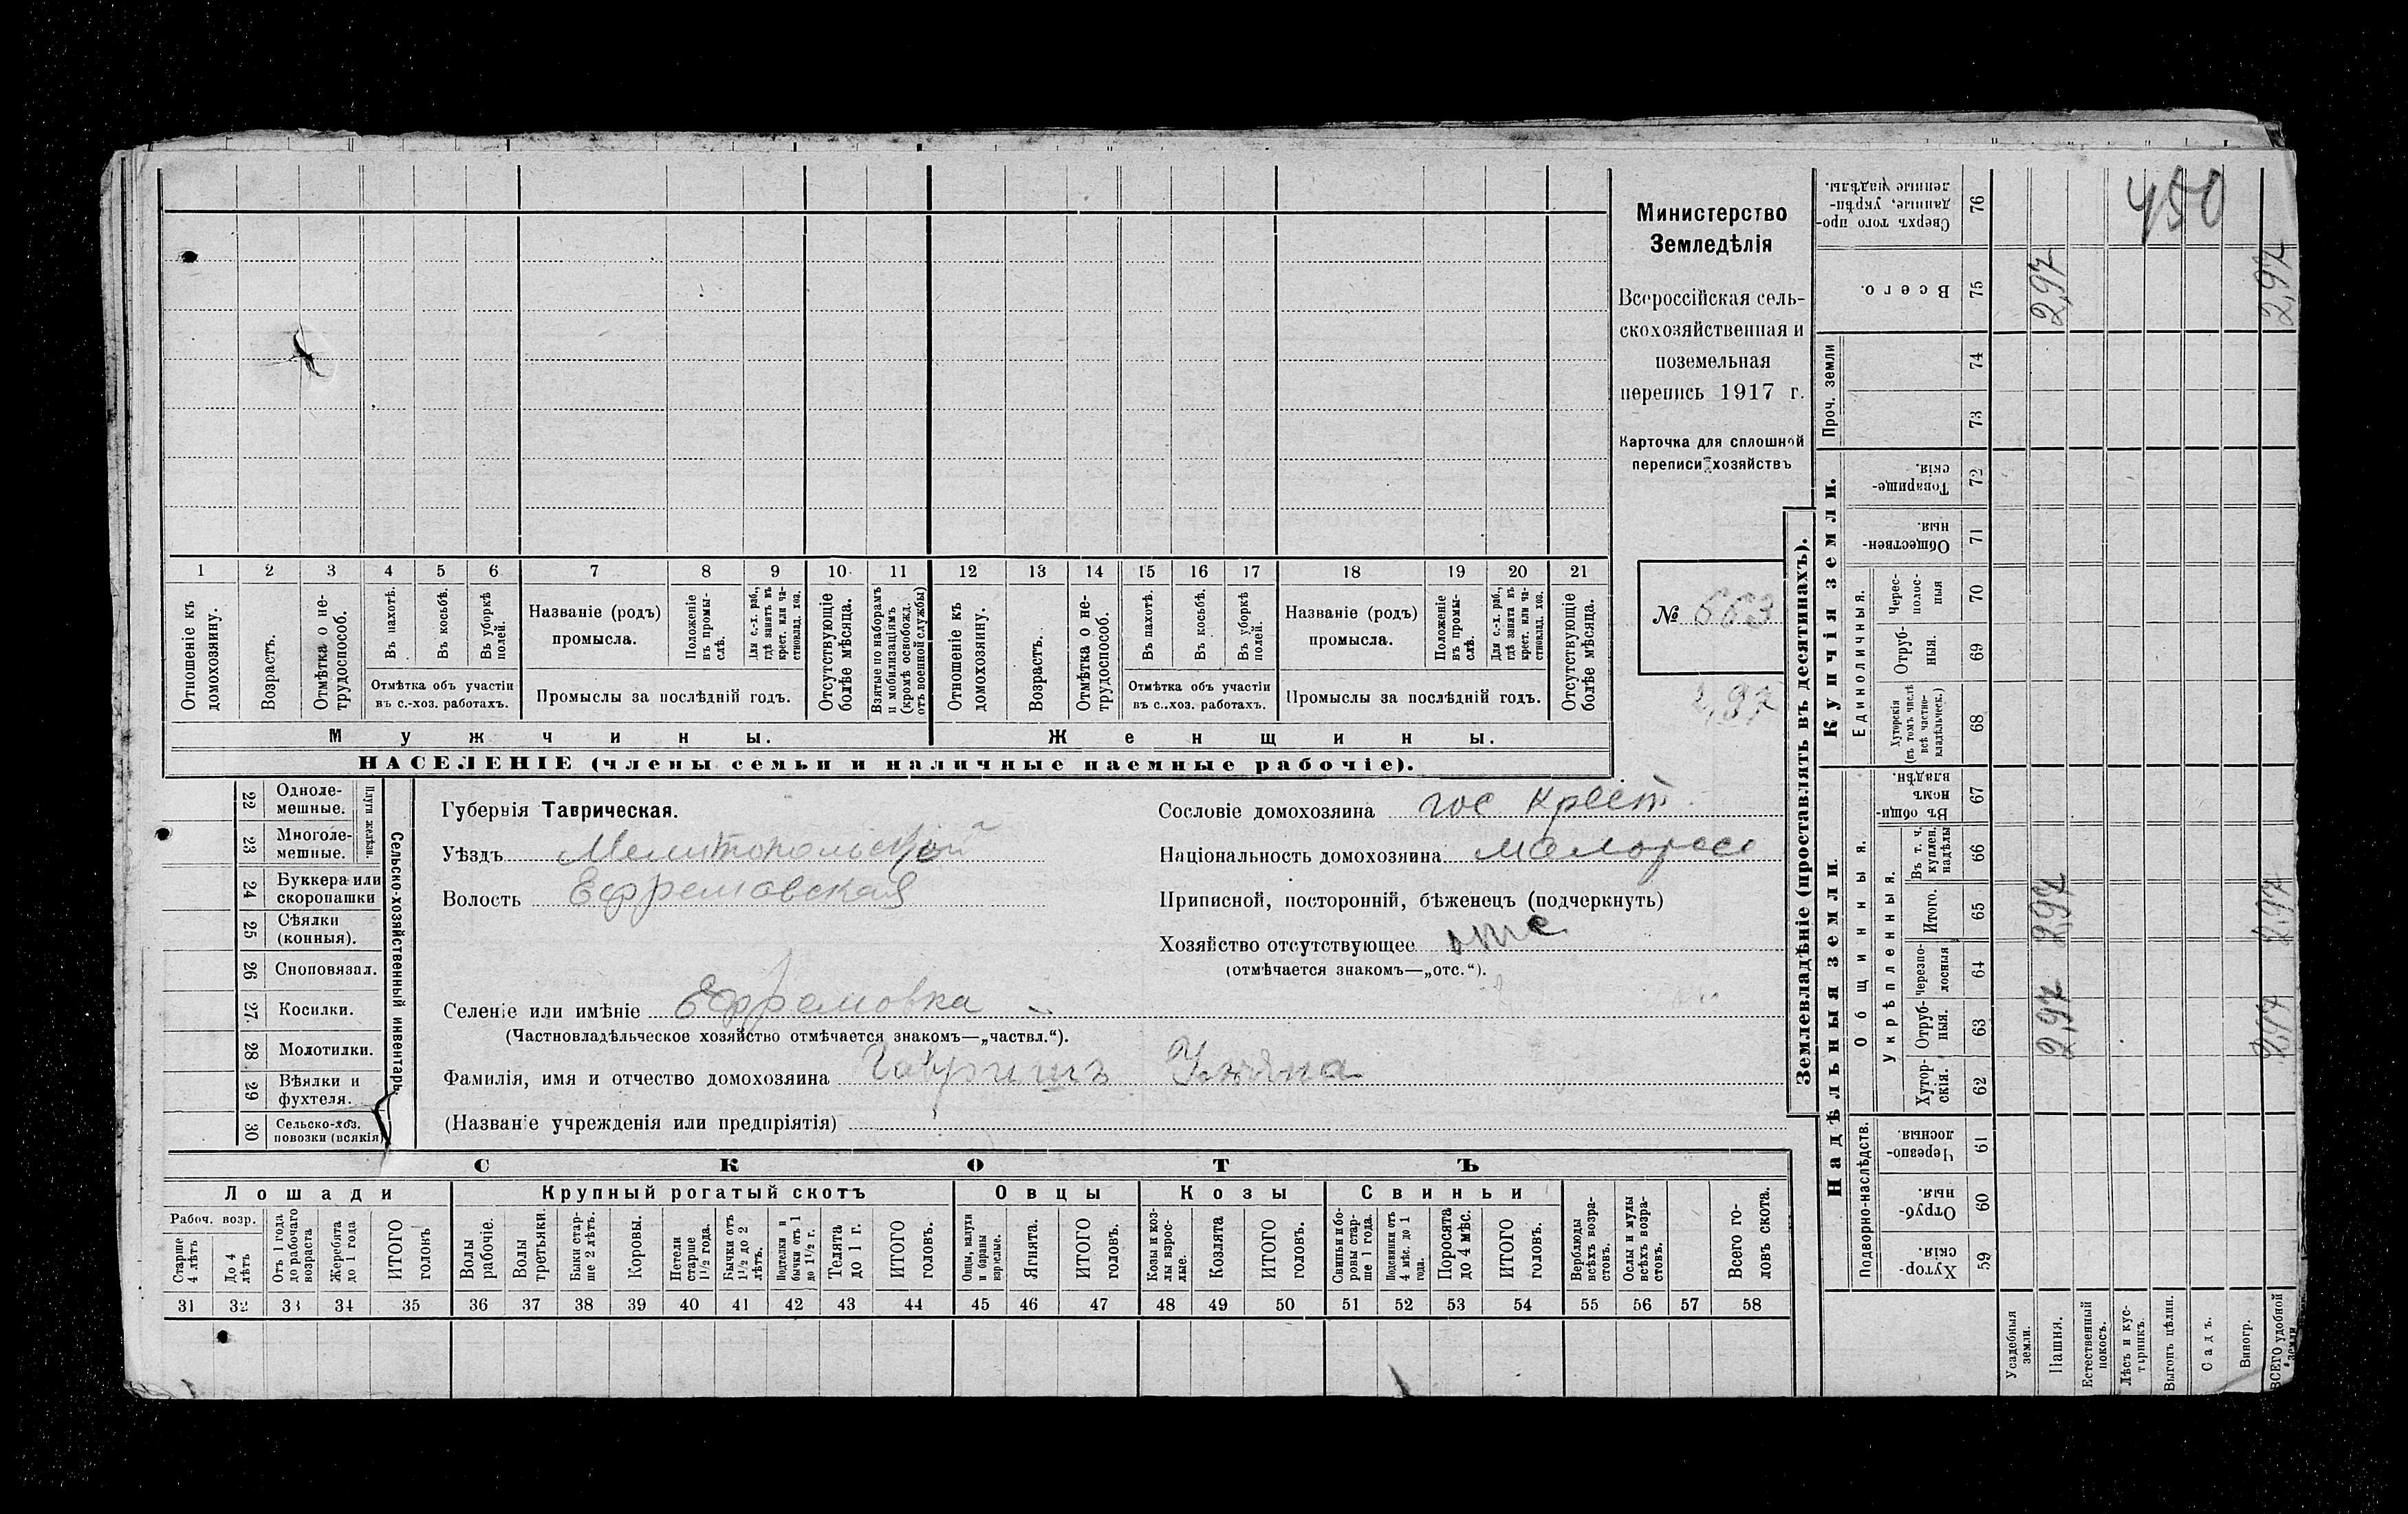 Министерство
Земледѣлія
Всероссійская сель-
скохозяйственная и
поземельная
перепись 1917 г.
Карточка для сплошной
переписи хозяйствъ
№ 663
2,97
450
1 2 3 4 5 6 7 8 9 10 11 12 13 14 15 16 17 18 19 20 21
Отношеніе къ домохозяину.
Возрастъ.
Отмѣтка о не-трудоспособ.
Въ пахотѣ.
Въ косьбѣ.
Въ уборкѣ полей.
Отмѣтка объ участіи
въ с.-хоз. работахъ.
Названіе (родъ)
промысла.
Положеніе въ промы-слѣ.
Для с.-х. раб., гдѣ занятъ въ крест. или ча-стновлад. хоз.
Промыслы за послѣдній годъ.
Отсутствующіе болѣе мѣсяца.
Взятые по наборамъ и мобилизаціямъ (кромѣ освобожд. отъ военной службы)
Отношеніе къ домохозяину.
Возрастъ.
Отмѣтка о не-трудоспособ.
Въ пахотѣ.
Въ косьбѣ.
Въ уборкѣ полей.
Отмѣтка объ участіи
въ с..хоз. работахъ.
Названіе (родъ)
промысла.
Положеніе въ промы-слѣ.
Для с.-х. раб., гдѣ занята въ крест. или ча-стновлад. хоз.
Промыслы за послѣдній годъ.
Отсутствующіе болѣе мѣсяца.
Мужчины.
Женщины.
НАСЕЛЕНІЕ (члены семьи и наличные наемные рабочіе).
22 Одноле-мешные.
23 Многоле-мешные.
Плуги желѣзн.
24 Буккера или скоропашки
25 Сѣялки (конныя).
26 Сноповязал.
27. Косилки.
28 Молотилки.
29 Вѣялки и фухтеля.
30 Сельско-хоз. повозки (всякія)
Сельско-хозяйственный инвентарь.
Губернія Таврическая.
Уѣздъ Мелитопольской
Волость Ефремовская
Селеніе или имѣніе Ефремовка
(Частновладѣльческое хозяйство отмѣчается знакомъ—„частвл.“).
Фамилія, имя и отчество домохозяина Ульяна
(Названіе учрежденія или предпріятія)
Сословіе домохозяина гос Крест
Національность домохозяина малоросс
Приписной, посторонній, бѣженецъ (подчеркнуть)
Хозяйство отсутствующее отс
(отмѣчается знакомъ—„отс.“).
СКОТЪ
Лошади
Рабоч. возр.
Старше 4 лѣтъ
До 4 лѣтъ
Отъ 1 года до рабочаго возраста
Жеребята до 1 года
ИТОГО головъ
Крупный рогатый скотъ
Волы рабочіе.
Волы третьяки.
Быки стар-ше 2 лѣтъ.
Коровы.
Петели старше 1½ года.
Бычки отъ 1½ до 2 лѣтъ.
Подтелки и бычки отъ 1 до 1½ г.
Телята до 1 г.
ИТОГО головъ.
Овцы
Овцы, валухи и бараны взрослые.
Ягнята.
ИТОГО головъ.
Козы
Козы и коз-лы взрос-лые.
Козлята
ИТОГО головъ.
Свиньи
Свиньи и бо-ровы стар-ше 1 года.
Подсвинки отъ 4 мѣс. до 1 года.
Поросята до 4 мѣс.
ИТОГО головъ.
Верблюды всѣхъ возра-стовъ.
Ослы и мулы всѣхъ возра-стовъ.
Всего го-ловъ скота.
31 32 33 34 35 36 37 38 39 40 41 42 43 44 45 46 47 48 49 50 51 52 53 54 55 56 57 58
Землевладѣніе (проставлять въ десятинахъ).
Купчія земли.
Проч. земли
Единоличныя.
Надѣльныя земли.
Общинныя.
Укрѣпленныя.
Подворно-наслѣдств.
Сверхъ того про-данные, укрѣп-ленные надѣлы. 76
Всего. 75 2,97 2,97
74
73
Товарище-скія. 72
Обществен-ныя 71
Черес-полос-ныя 70
Отруб-ныя. 69
Хуторскія (въ томъ числѣ всѣ частно-владѣльческ.) 68
Въ общи-номъ владѣн. 67
Въ т. ч. куплен. надѣлы 66
Итого. 65 2,97 2,97
Черезпо-лосныя 64
Отруб-ныя. 63 2,97 2,97
Хутор-скія. 62
Черезпо-лосныя. 61
Отруб-ныя. 60
Хутор-скія. 59
Усадебныя земли.
Пашня.
Естественный покосъ.
Лѣсъ и кус-тарникъ.
Выгонъ цѣлин.
Садъ.
Виногр.
ВСЕГО удобной земли